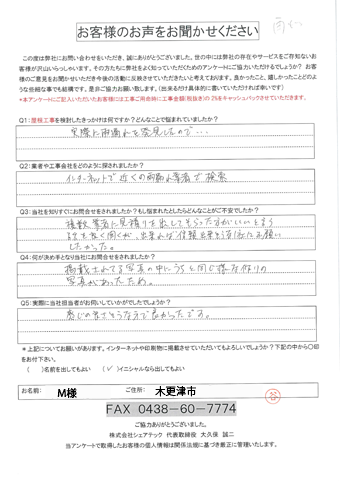 お客様のお声をお聞かせください
この度は弊社にお問い合わせをいただき、誠にありがとうございました。世の中には弊社の存在やサービスをご存知ないお
客様が沢山いらっしゃいます。その方たちに弊社をよく知っていただくためのアンケートにご協力いただけるでしょうか? お客
様のご意見をお聞かせいただき今後の活動に反映させていただきたいと考えております。良かったこと、嬉しかったことどのよ
うな些細な事でも結構です。是非ご協力お願い致します。(出来るだけ具体的に書いていただければ幸いです)
*本アンケートにご記入いただいたお客様には工事ご用命時に工事金額(税抜き)の2%をキャッシュバックさせていただきます。
Q1:屋根工事を検討したきっかけは何ですか?どんなことで悩まれていましたか?
実際に雨漏れを発見したので…
Q2:業者や工事会社をどのように探されましたか?
インターネットで近くの雨漏れ業者で検索
Q3:当社を知りすぐにお問合せをされましたか?もし悩まれたとしたらどんなことがご不安でしたか?
複数業者に見積りを出してもらった方がいいという
話を良く聞くが、出来れば信頼出来る1店にお願い
したかった。
Q4:何が決め手となり当社にお問合せをされましたか?
掲載されてる写真の中にうちと同じ様な作りの
写真があったため。
Q5:実際に当社担当者がお伺いしていかがでしたでしょうか?
感じの良さそうな方で良かったです。
*上記についてお願いがあります。インターネットや印刷物に掲載させていただいてもよろしいでしょうか?下記の中から〇印
をお付下さい。
( )名前を出してもよい (✓)イニシャルなら出してもよい
お名前: M様 ご住所: 木更津市
FAX 0438-60-7774
ご協力ありがとうございました。
株式会社シェアテック 代表取締役 大久保 誠二
当アンケートで取得したお客様の個人情報は関係法規に基づき厳正に管理いたします。